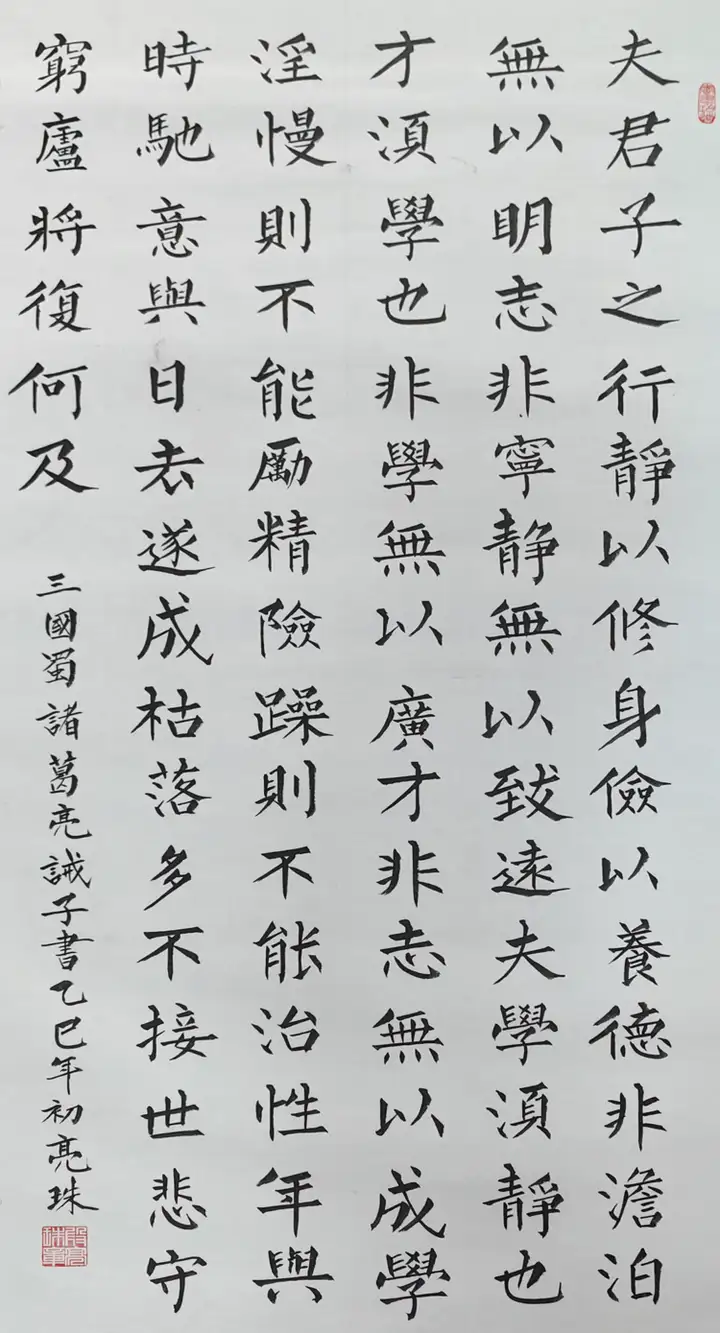 夫君子之行靜以修身儉以養德非澹泊
無以明志非寧静無以致遠夫學湏靜也
才湏學也非學無以廣才非志無以成學
淫慢則不能勵精險躁則不能治性年與
時馳意與日去遂成枯落多不接世悲守
窮廬將復何及
三國蜀諸葛亮誡子書乙巳年初亮珠